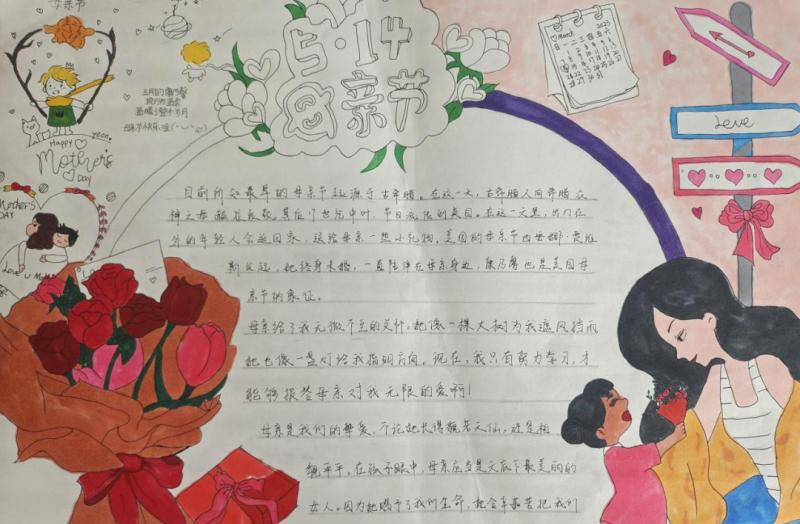 母亲节
Happy
Mother's
DAY
Mother's
DAY
LOVE U MoM
5·14
母亲节
March
2023
日一二三四五六
Love
目前所知最早的母亲节起源于古希腊。在这一天,古希腊人向希腊众
神之母赫拉致敬。其后17世纪中叶,节日流传到英国。在这一天里,出门在
外的年轻人会返回家,送给母亲一些小礼物。美国的母亲节由安娜·贾维
斯发起,她终身未婚,一直陪伴在母亲身边,康乃馨也是美国母
亲节的象征。
母亲给了我无微不至的关怀。她像一棵大树为我遮风挡雨
她也像一盏灯给我指明方向。现在,我只有努力学习,才
能够报答母亲对我无限的爱啊!
母亲是我们的挚爱,不论她长得貌若天仙,还是相
貌平平。在孩子眼中,母亲应当是天底下最美丽的
女人。因为她赐予了我们生命,她含辛茹苦把我们